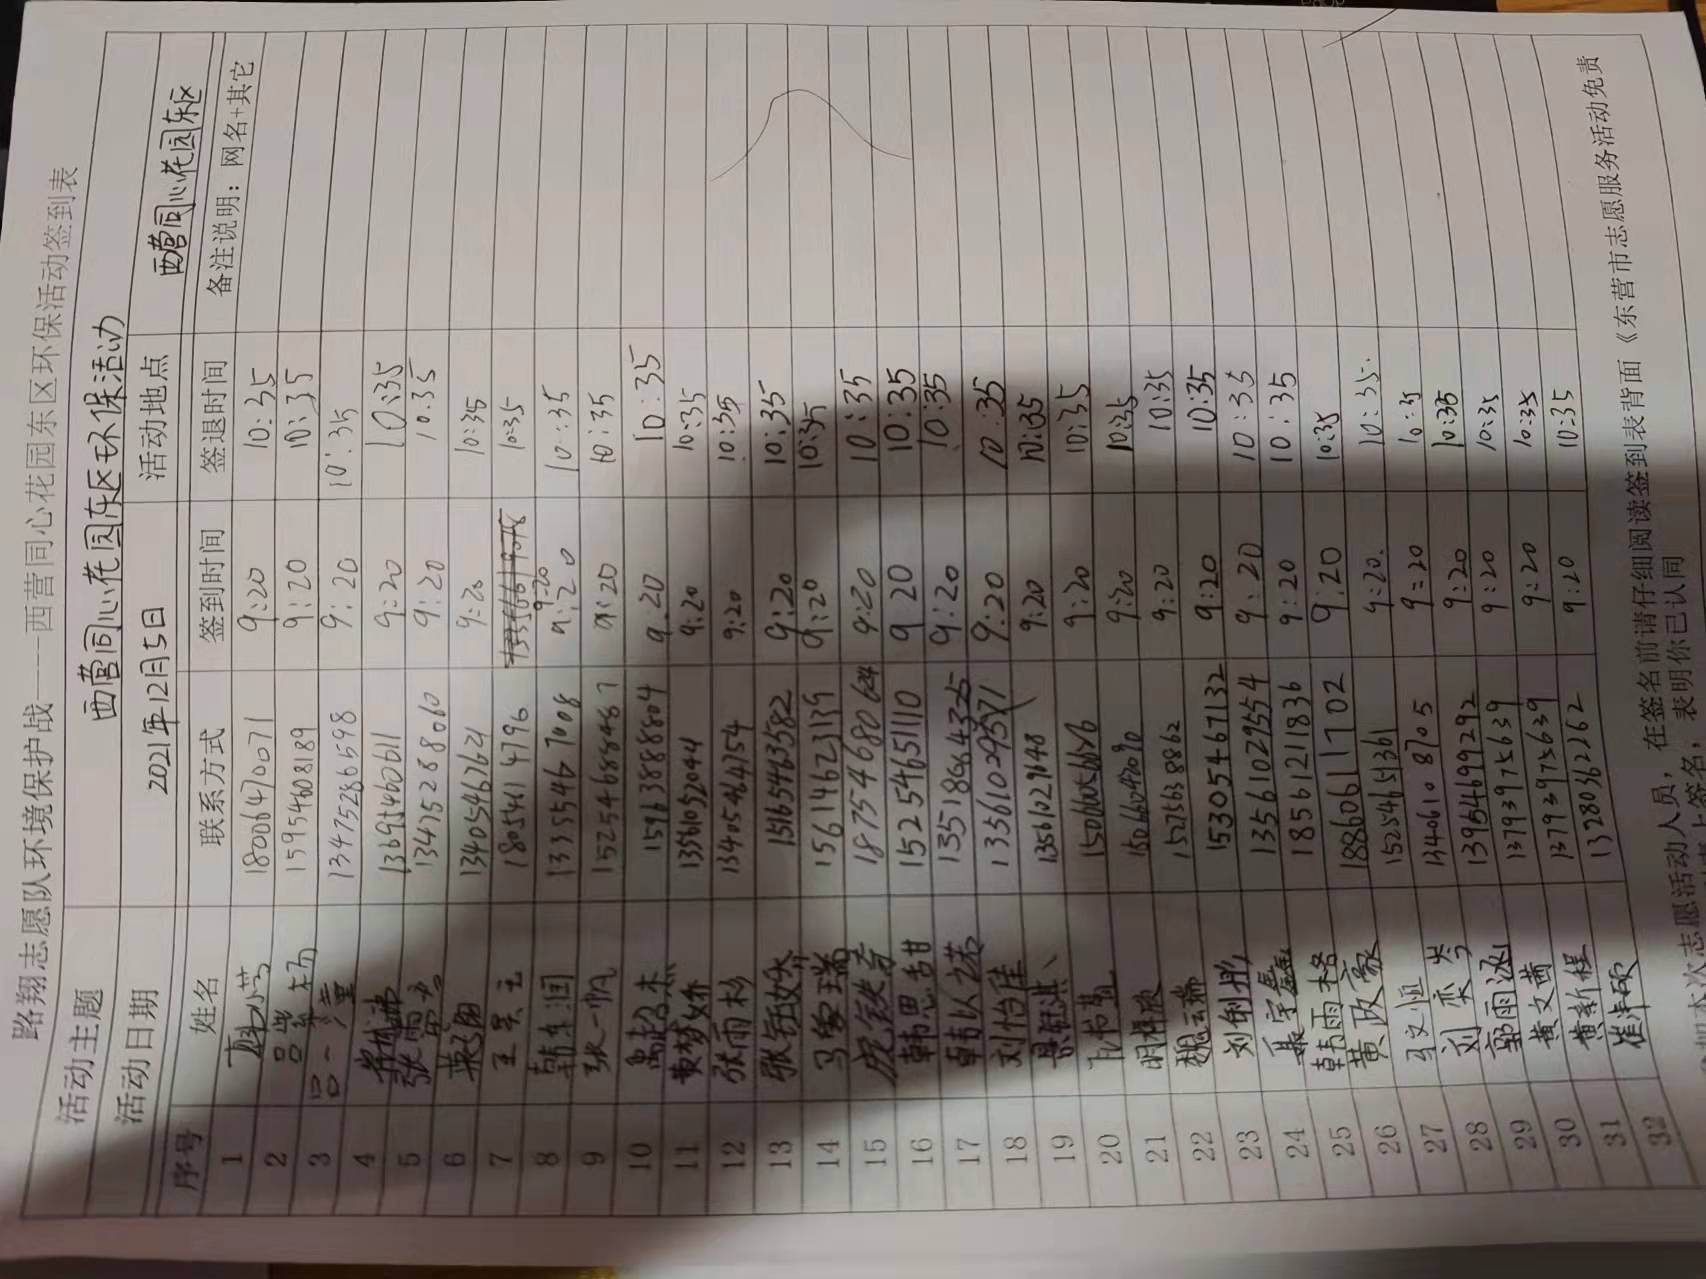 路翔志愿队环境保护战----西营同心花园东区环保活动签到表
活动主题 西营同心花园东区环保活动
活动日期 2021年12月5日 活动地点 西营同心花园东区
序号 姓名 联系方式 签到时间 签退时间 备注说明：网名+其它
1 18006470071 9:20 10:35
2 15954608189 9:20 10:35
3 吕一童 13475286598 9:20 10:35
4 13695460611 9:20 10:35
5 张雷 13475288060 9:20 10:35
6 13405467621 9:20 10:35
7 王昊云 18054614796 9:20 10:35
8 韩东润 13355467008 9:20 10:35
9 张一帆 15254688487 9:20 10:35
10 禹超杰 15963888804 9:20 10:35
11 黄梦娇 13361052044 9:20 10:35
12 张雨杉 13405464754 9:20 10:35
13 张钰 15165463582 9:20 10:35
14 马家瑞 15614623139 9:20 10:35
15 18754680624 9:20 10:35
16 韩思甜 15254651110 9:20 10:35
17 韩以诺 13518664325 9:20 10:35
18 刘怡佳 13561029571 9:20 10:35
19 13561029148 9:20 10:35
20 15066056676 9:20 10:35
21 15066042090 9:20 10:35
22 魏云瑞 15275638862 9:20 10:35
23 刘俐彤 15305467132 9:20 10:35
24 聂宇鑫 13561029554 9:20 10:35
25 韩雨格 18561211836 9:20 10:35
26 黄政豪 18860611702 9:20 10:35
27 马文恒 15254651361 9:20 10:35
28 刘奕 13406108705 9:20 10:35
29 郭雨涵 13954699292 9:20 10:35
30 黄文茜 13793975639 9:20 10:35
31 黄新程 13793975639 9:20 10:35
32 崔沛硕 13280362262 9:20 10:35
本次志愿活动人员，在签名前请仔细阅读签到表背面《东营市志愿服务活动免责
上签名，表明你已认同